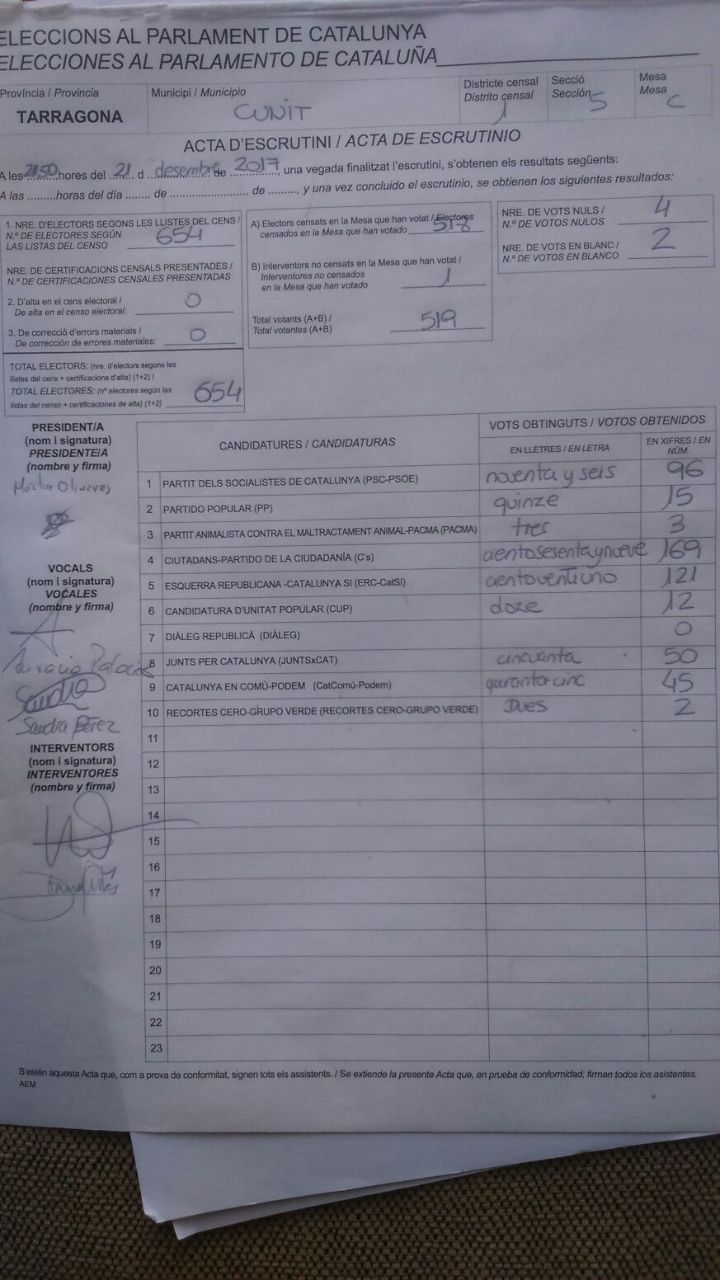 ELECCIONS AL PARLAMENT DE CATALUNYA
ELECCIONES AL PARLAMENTO DE CATALUÑA
Província / Provincia
TARRAGONA
Municipi / Municipio
CUNIT
Districte censal
Distrito censal
1
Secció
Sección
5
Mesa
Mesa
C
ACTA D'ESCRUTINI / ACTA DE ESCRUTINIO
A les hores del 21 d desembre de 2017, una vegada finalitzat l'escrutini, s'obtenen els resultats següents:
A las ........horas del día ....... de ............... de ........, y una vez concluido el escrutinio, se obtienen los siguientes resultados:
1. NRE. D'ELECTORS SEGONS LES LLISTES DEL CENS /
N.º DE ELECTORES SEGÚN
LAS LISTAS DEL CENSO
654
NRE. DE CERTIFICACIONS CENSALS PRESENTADES /
N.º DE CERTIFICACIONES CENSALES PRESENTADAS
2. D'alta en el cens electoral /
De alta en el censo electoral:
0
3. De correcció d'errors materials /
De corrección de errores materiales:
0
TOTAL ELECTORS: (nre. d'electors segons les
llistes del cens + certificacions d'alta) (1+2) /
TOTAL ELECTORES: (nº electores según las
listas del censo + certificaciones de alta) (1+2)
654
A) Electors censats en la Mesa que han votat / Electores
censados en la Mesa que han votado
518
B) Interventors no censats en la Mesa que han votat /
Interventores no censados
en la Mesa que han votado
1
Total votants (A+B) /
Total votantes (A+B)
519
NRE. DE VOTS NULS /
N.º DE VOTOS NULOS
4
NRE. DE VOTS EN BLANC /
N.º DE VOTOS EN BLANCO
2
PRESIDENT/A
(nom i signatura)
PRESIDENTE/A
(nombre y firma)
VOCALS
(nom i signatura)
VOCALES
(nombre y firma)
Sandra
Sandra Pérez
INTERVENTORS
(nom i signatura)
INTERVENTORES
(nombre y firma)
CANDIDATURES / CANDIDATURAS
VOTS OBTINGUTS / VOTOS OBTENIDOS
EN LLETRES / EN LETRA
EN XIFRES / EN NÚM.
1 PARTIT DELS SOCIALISTES DE CATALUNYA (PSC-PSOE) noventa y seis 96
2 PARTIDO POPULAR (PP) quinze 15
3 PARTIT ANIMALISTA CONTRA EL MALTRACTAMENT ANIMAL-PACMA (PACMA) tres 3
4 CIUTADANS-PARTIDO DE LA CIUDADANÍA (C's) ciento sesenta y nueve 169
5 ESQUERRA REPUBLICANA -CATALUNYA SI (ERC-CatSí) cientoventiuno 121
6 CANDIDATURA D'UNITAT POPULAR (CUP) doze 12
7 DIÀLEG REPUBLICÀ (DIÀLEG) 0
8 JUNTS PER CATALUNYA (JUNTSxCAT) cincuanta 50
9 CATALUNYA EN COMÚ-PODEM (CatComú-Podem) quranta-cinc 45
10 RECORTES CERO-GRUPO VERDE (RECORTES CERO-GRUPO VERDE) Dues 2
11
12
13
14
15
16
17
18
19
20
21
22
23
S'estén aquesta Acta que, com a prova de conformitat, signen tots els assistents. / Se extiende la presente Acta que, en prueba de conformidad, firman todos los asistentes.
AEM